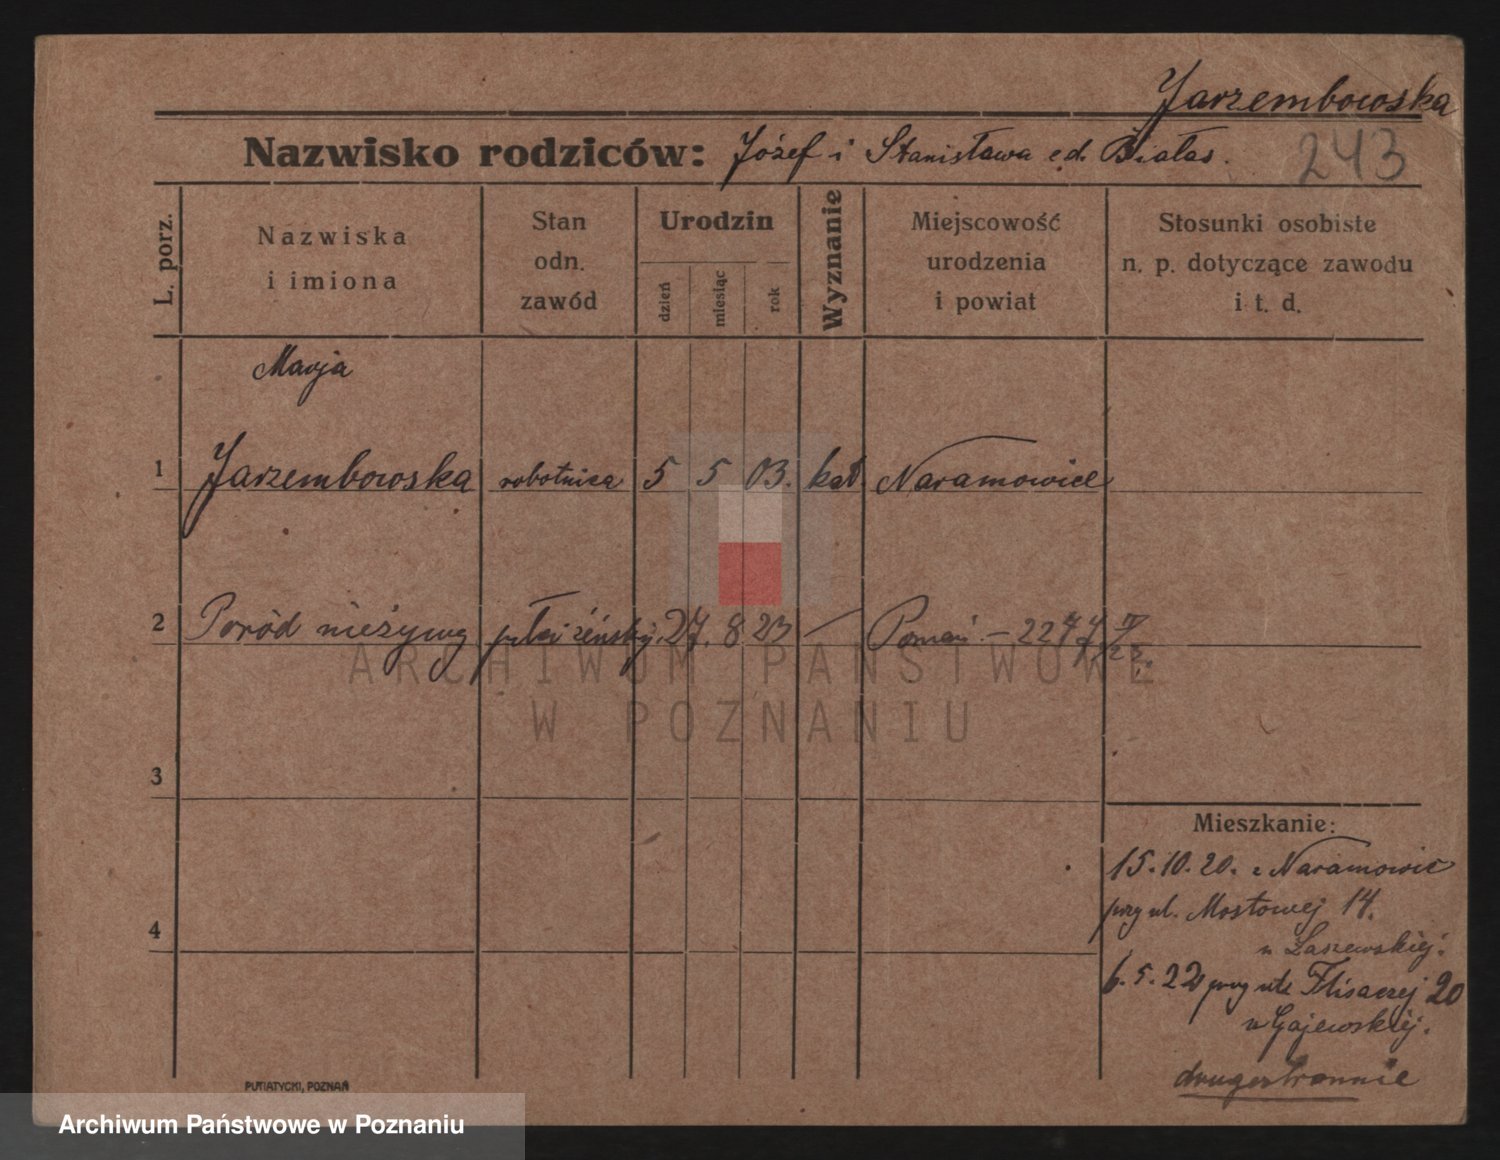 Jarzembowska
Nazwisko rodziców: Józef i Stanisława Białas.
243
L. porz.
Nazwiska
i imiona
Stan
odn.
zawód
Urodzin
dzień
miesiąc
rok
Wyznanie
Miejscowość
urodzenia
i powiat
Stosunki osobiste
n. p. dotyczące zawodu
i t. d.
Marja
1 Jarzembowska robotnica 5 5 03. kat. Naramowice
2 Poród nieżywy płci żeński. 27. 8 23 — Poznań –
ARCHIWUM PAŃSTWOWE
W POZNANIU
3
4
Mieszkanie:
15.10.20. z Naramowic
przy ul. Mostowej 14.
u Łaszewskiej.
6.5.22 przy ul. Flisaczej 20
u Gajewskiej.
drugostronnie
PUTIATYCKI, POZNAŃ
Archiwum Państwowe w Poznaniu